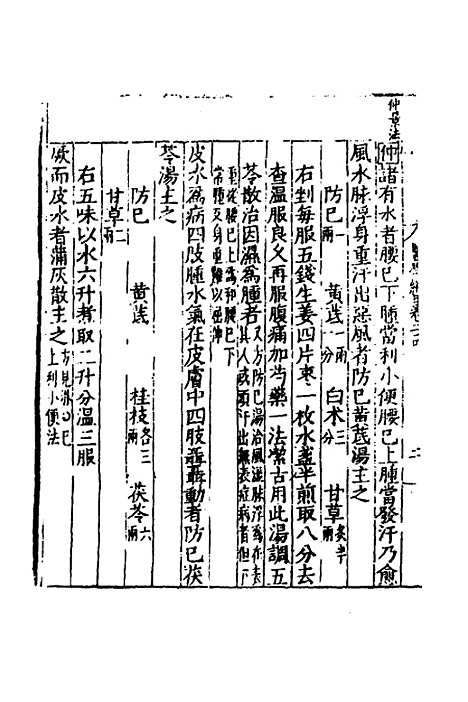 仲景法
仲諸有水者腰已下腫當利小便腰已上腫當發汗乃愈
風水脉浮身重汗出惡風者防已黃茋湯主之
防已一兩 黃茋一兩一分 白朮三分 甘草炙半兩
右剉每服五錢生姜四片枣一枚水盞半煎取八分去
查溫服良久再服腹痛加芍藥一法潔古用此湯調五
苓散治因濕為腫者又方防已湯治風濕脉浮為在表其人或頭汗出無表症病者但下
重從腰已上為和腰已下當腫及身重難以屈伸
皮水為病四肢腫水氣在皮膚中四肢聶聶動者防已茯
苓湯主之
防已 黃茋 桂枝各三兩 茯苓六兩
甘草二兩
右五味以水六升煮取二升分溫三服
厥而皮水者蒲灰散主之方見消已上利小便法